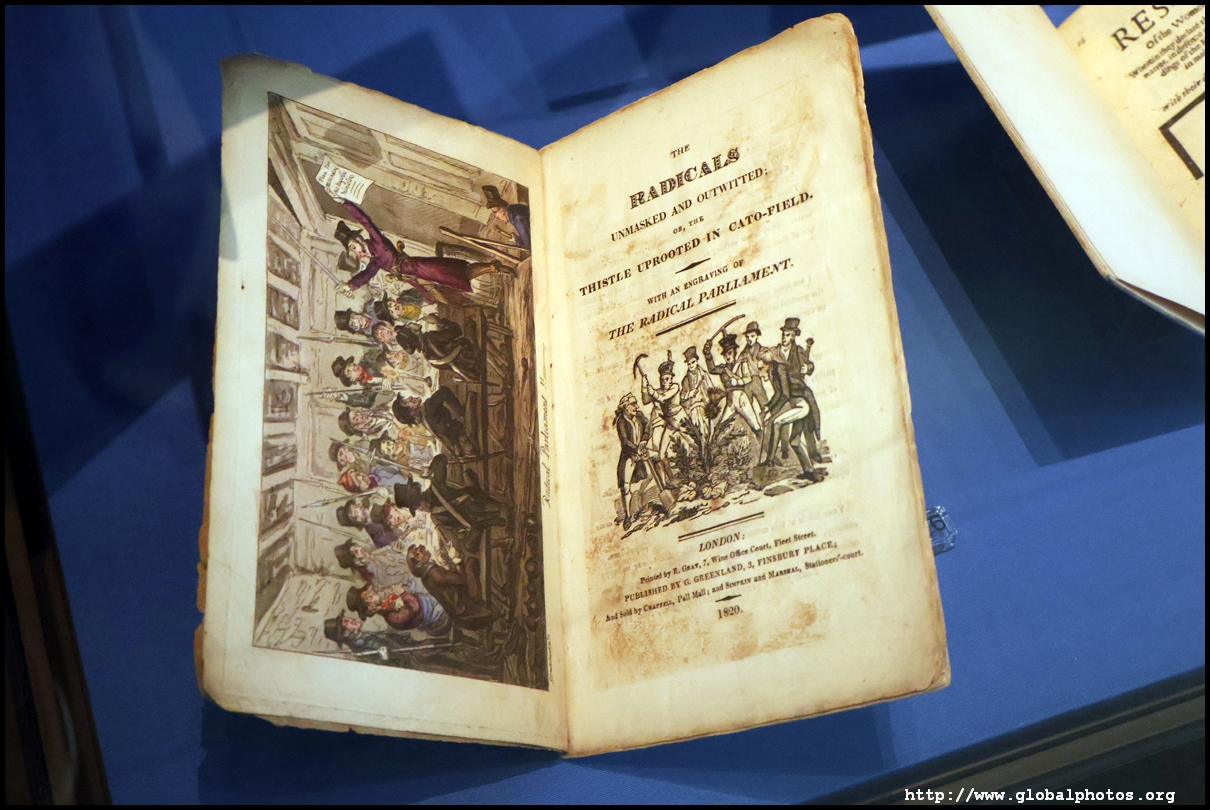 Radical Parliament
THE
RADICALS
UNMASKED AND OUTWITTED;
OR, THE
THISTLE UPROOTED IN CATO-FIELD.
WITH AN ENGRAVING OF
THE RADICAL PARLIAMENT.
LONDON:
Printed by R. GRAY, 7, Wine Office Court, Fleet Street.
PUBLISHED BY G. GREENLAND, 3, FINSBURY PLACE;
And Sold by CHAPPELL, Pall Mall; and SIMPKIN and MARSHAL, Stationers'-court.
1820.
RES
Of the Wome
Wherein they declare th
warre, in defence
dings of the
With their
6
http://www.globalphotos.org